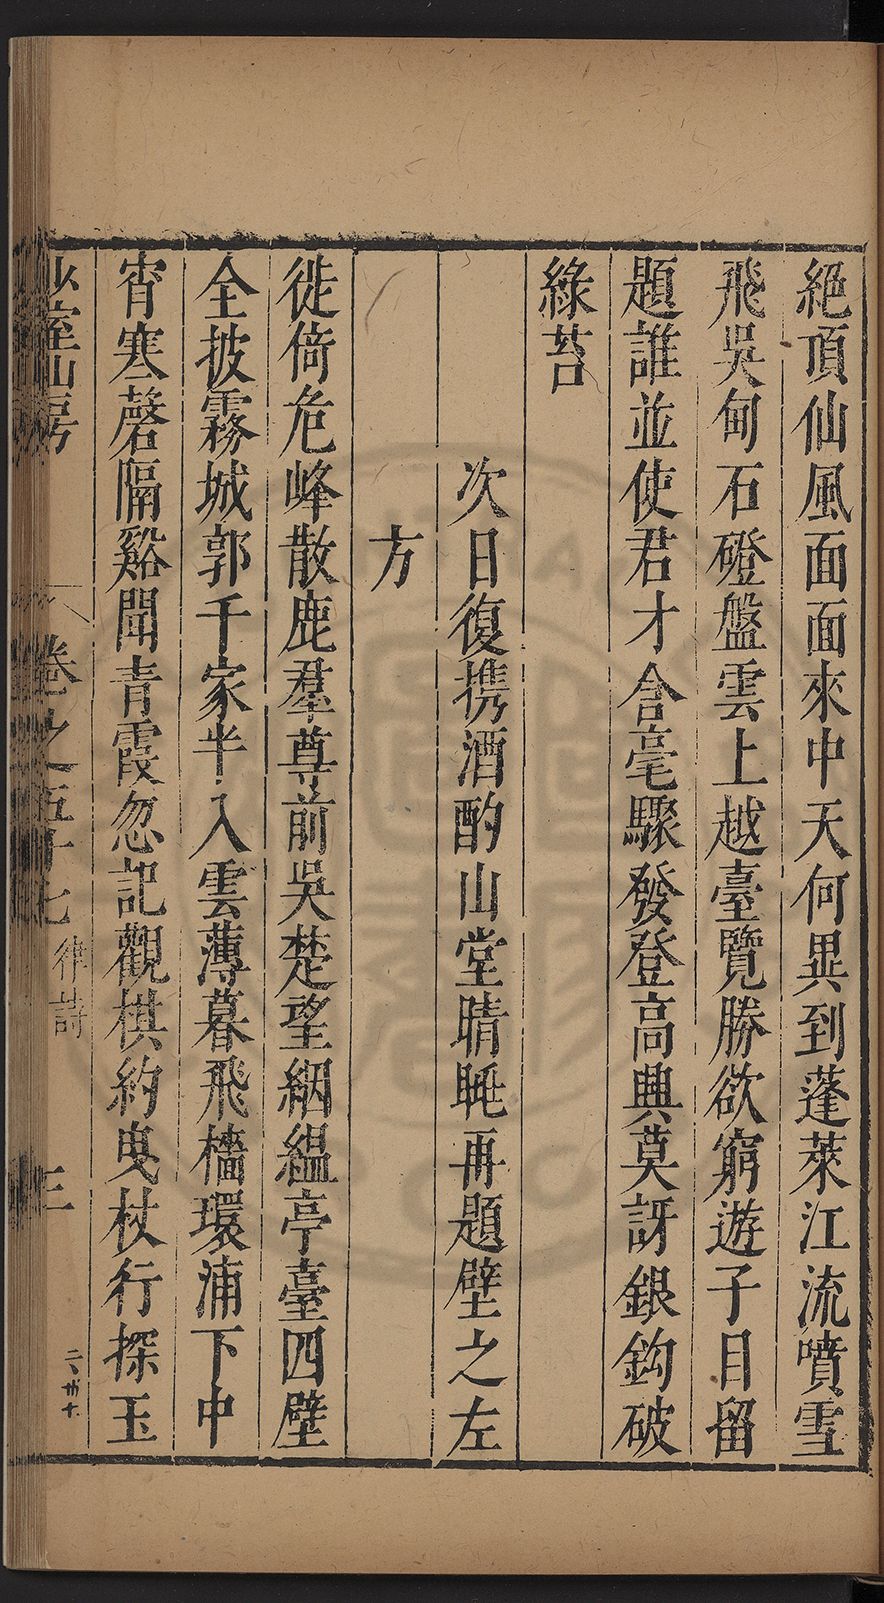 絕頂仙風面面來中天何異到蓬萊江流噴雪
飛吳甸石磴盤雲上越臺覽勝欲窮遊子目留
題誰並使君才含毫驟發登高興莫訝銀鈎破
綠苔
次日復携酒酌山堂晴眺再題壁之左
方
徙倚危峰散鹿羣尊前吳楚望絪縕亭臺四壁
全披霧城郭千家半入雲薄暮飛檣環浦下中
宵寒磬隔谿聞青霞忽記觀棋約曳杖行探玉
少室山房
卷之五十七
律詩
三